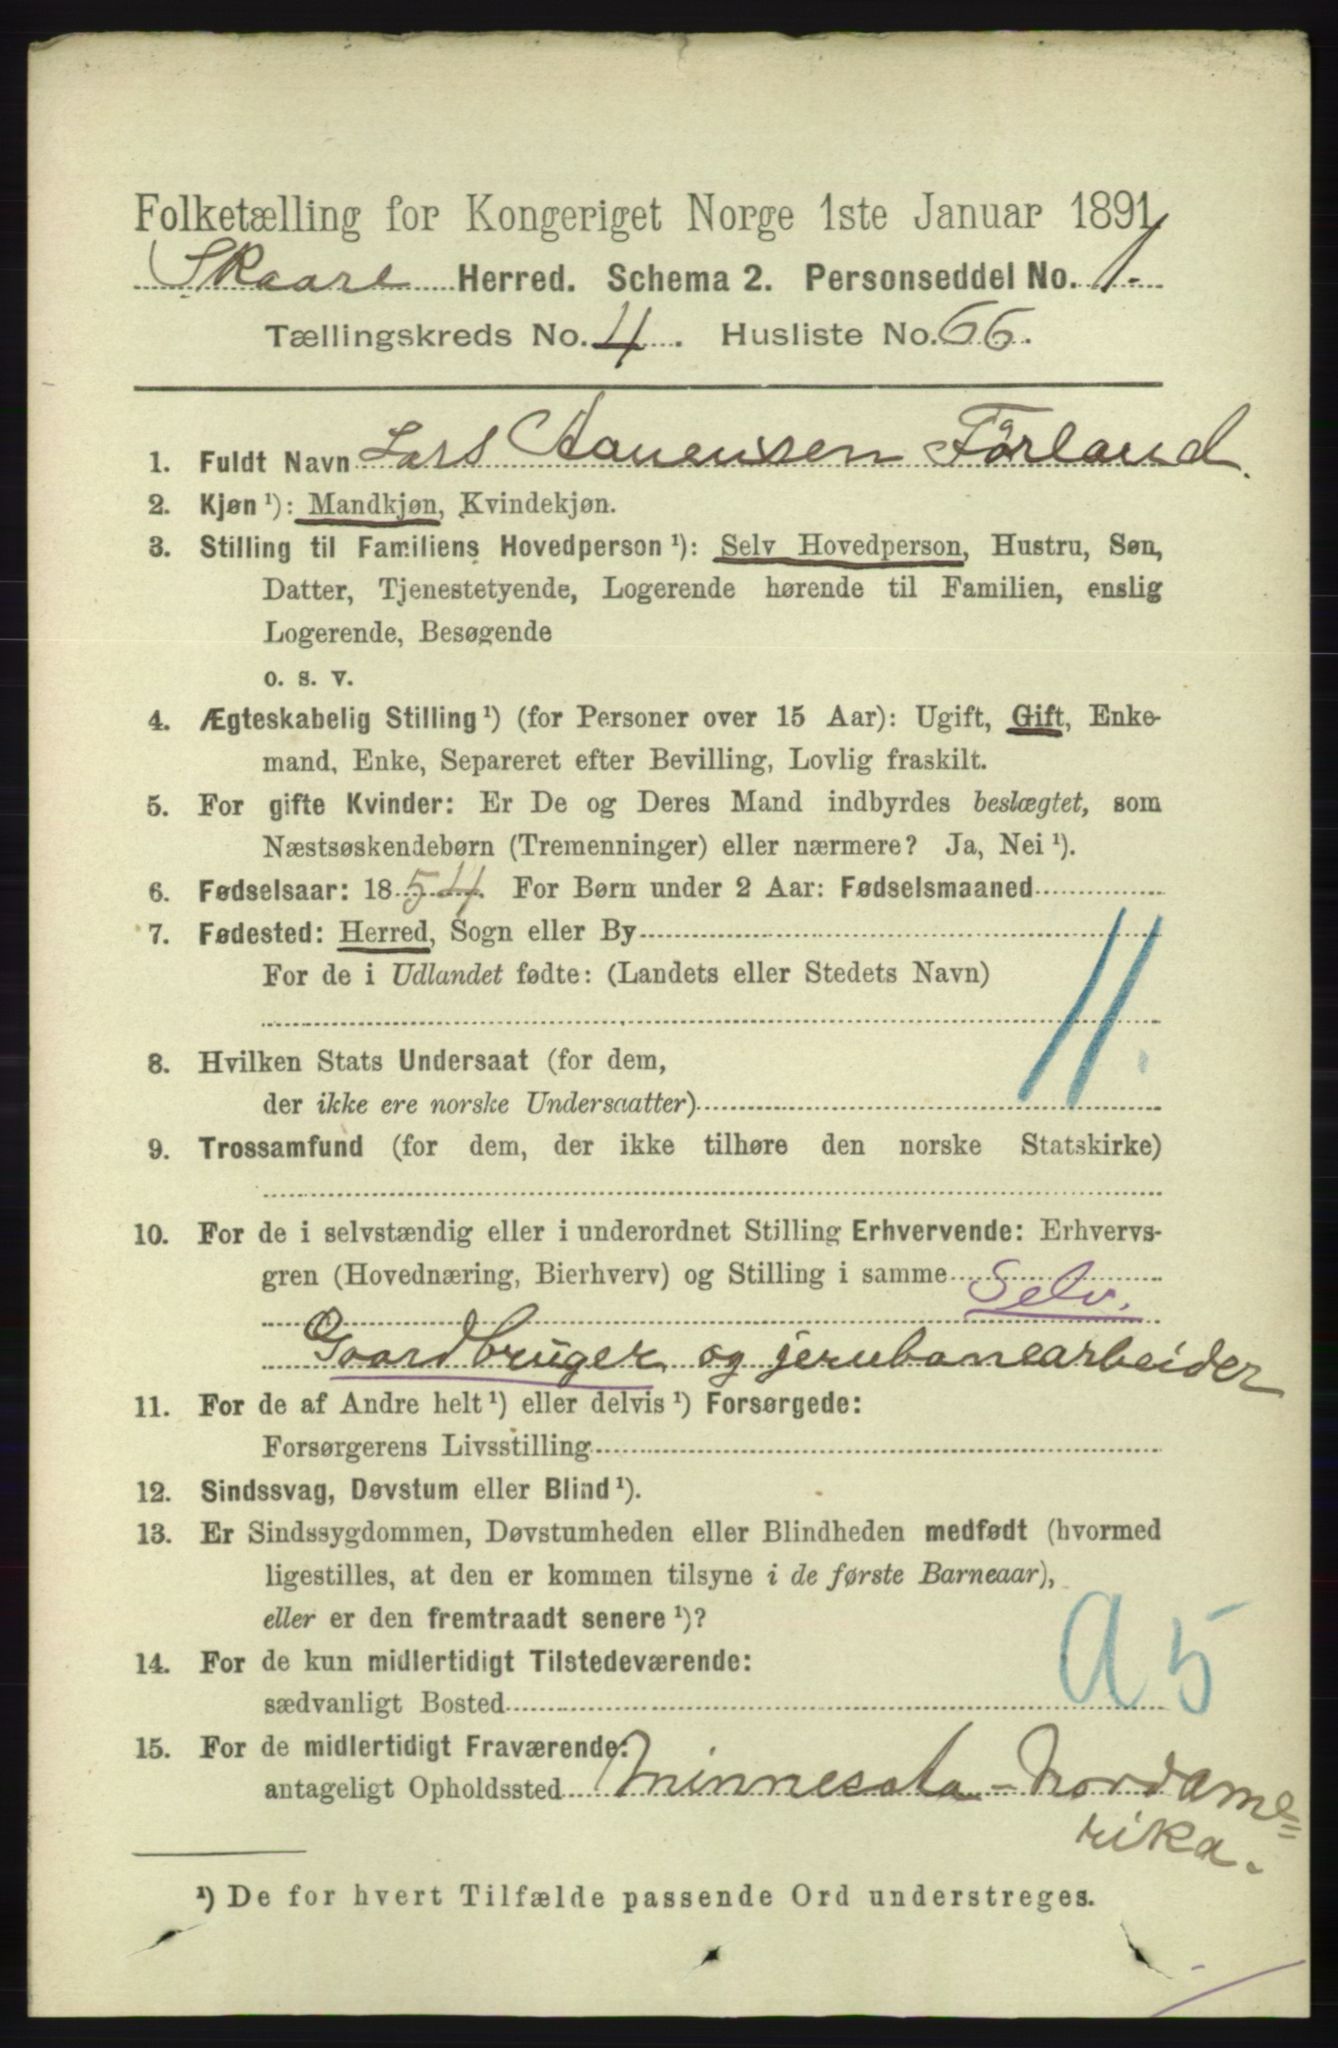 Folketælling for Kongeriget Norge 1ste Januar 1891
Skaare Herred. Schema 2. Personseddel No. 1.
Tællingskreds No. 4. Husliste No. 66.
1. Fuldt Navn Lars Aanensen Førland.
2. Kjøn ¹): Mandkjøn, Kvindekjøn.
3. Stilling til Familiens Hovedperson ¹): Selv Hovedperson, Hustru, Søn,
Datter, Tjenestetyende, Logerende hørende til Familien, enslig
Logerende, Besøgende
o. s. v.
4. Ægteskabelig Stilling ¹) (for Personer over 15 Aar): Ugift, Gift, Enke-
mand, Enke, Separeret efter Bevilling, Lovlig fraskilt.
5. For gifte Kvinder: Er De og Deres Mand indbyrdes beslægtet, som
Næstsøskendebørn (Tremenninger) eller nærmere? Ja, Nei ¹).
6. Fødselsaar: 1854. For Børn under 2 Aar: Fødselsmaaned
7. Fødested: Herred, Sogn eller By
For de i Udlandet fødte: (Landets eller Stedets Navn)
8. Hvilken Stats Undersaat (for dem,
der ikke ere norske Undersaatter)
9. Trossamfund (for dem, der ikke tilhøre den norske Statskirke)
10. For de i selvstændig eller i underordnet Stilling Erhvervende: Erhvervs-
gren (Hovednæring, Bierhverv) og Stilling i samme
Selv.
Gaardbruger og jernbanearbeider
11. For de af Andre helt ¹) eller delvis ¹) Forsørgede:
Forsørgerens Livsstilling
12. Sindssvag, Døvstum eller Blind ¹).
13. Er Sindssygdommen, Døvstumheden eller Blindheden medfødt (hvormed
ligestilles, at den er kommen tilsyne i de første Barneaar),
eller er den fremtraadt senere ¹)?
a 5
14. For de kun midlertidigt Tilstedeværende:
sædvanligt Bosted
15. For de midlertidigt Fraværende:
antageligt Opholdssted Minnesota - Nordame=
rika.
¹) De for hvert Tilfælde passende Ord understreges.